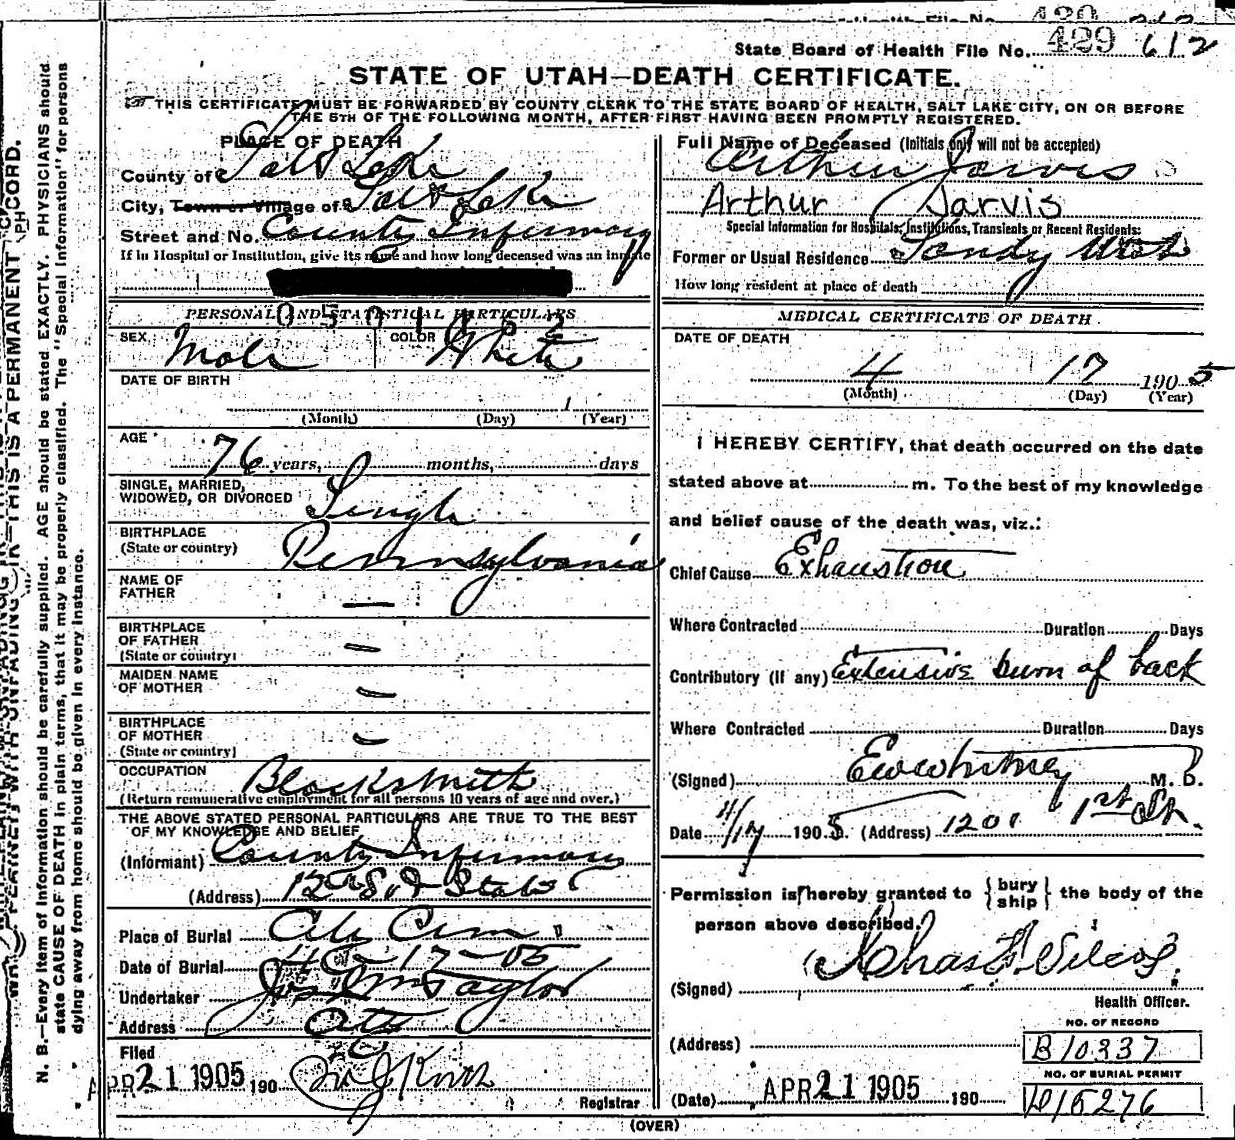 State Board of Health File No. 429 612
STATE OF UTAH—DEATH CERTIFICATE.
THIS CERTIFICATE MUST BE FORWARDED BY COUNTY CLERK TO THE STATE BOARD OF HEALTH, SALT LAKE CITY, ON OR BEFORE
THE 5TH OF THE FOLLOWING MONTH, AFTER FIRST HAVING BEEN PROMPTLY REGISTERED.
PLACE OF DEATH
County of Salt Lake
City, Town or Village of Salt Lake
Street and No. County Infirmary
If in Hospital or Institution, give its name and how long deceased was an inmate
PERSONAL AND STATISTICAL PARTICULARS
SEX Male COLOR White
DATE OF BIRTH
(Month) (Day) (Year)
AGE 76 years, months, days
SINGLE, MARRIED,
WIDOWED, OR DIVORCED Single
BIRTHPLACE
(State or country) Pennsylvania
NAME OF
FATHER —
BIRTHPLACE
OF FATHER
(State or country) —
MAIDEN NAME
OF MOTHER —
BIRTHPLACE
OF MOTHER
(State or country) —
OCCUPATION Blacksmith
(Return remunerative employment for all persons 10 years of age and over.)
THE ABOVE STATED PERSONAL PARTICULARS ARE TRUE TO THE BEST
OF MY KNOWLEDGE AND BELIEF
(Informant) County Infirmary
(Address) 12th So & State
Place of Burial City Cem
Date of Burial 4-17-05
Undertaker Jos Wm Taylor
Address
Filed APR 21 1905 190
Registrar
Full Name of Deceased (Initials only will not be accepted)
Arthur Jarvis
Arthur Jarvis
Special Information for Hospitals, Institutions, Transients or Recent Residents:
Former or Usual Residence Sandy Utah
How long resident at place of death
MEDICAL CERTIFICATE OF DEATH
DATE OF DEATH
4 17 1905
(Month) (Day) (Year)
I HEREBY CERTIFY, that death occurred on the date
stated above at m. To the best of my knowledge
and belief cause of the death was, viz.:
Chief Cause Exhaustion
Where Contracted Duration Days
Contributory (If any) Extensive burn of back
Where Contracted Duration Days
(Signed) Ewwhitney M. D.
Date 4/17 1905. (Address) 1201 1st St.
Permission is hereby granted to {bury ship} the body of the
person above described.
(Signed) Chas F. Wilcox.
Health Officer.
(Address)
NO. OF RECORD
B10337
NO. OF BURIAL PERMIT
D15276
(Date) APR 21 1905 190
(OVER)
N. B.—Every item of information should be carefully supplied. AGE should be stated EXACTLY. PHYSICIANS should
state CAUSE OF DEATH in plain terms, that it may be properly classified. The "Special Information" for persons
dying away from home should be given in every instance.
THIS IS A PERMANENT RECORD.